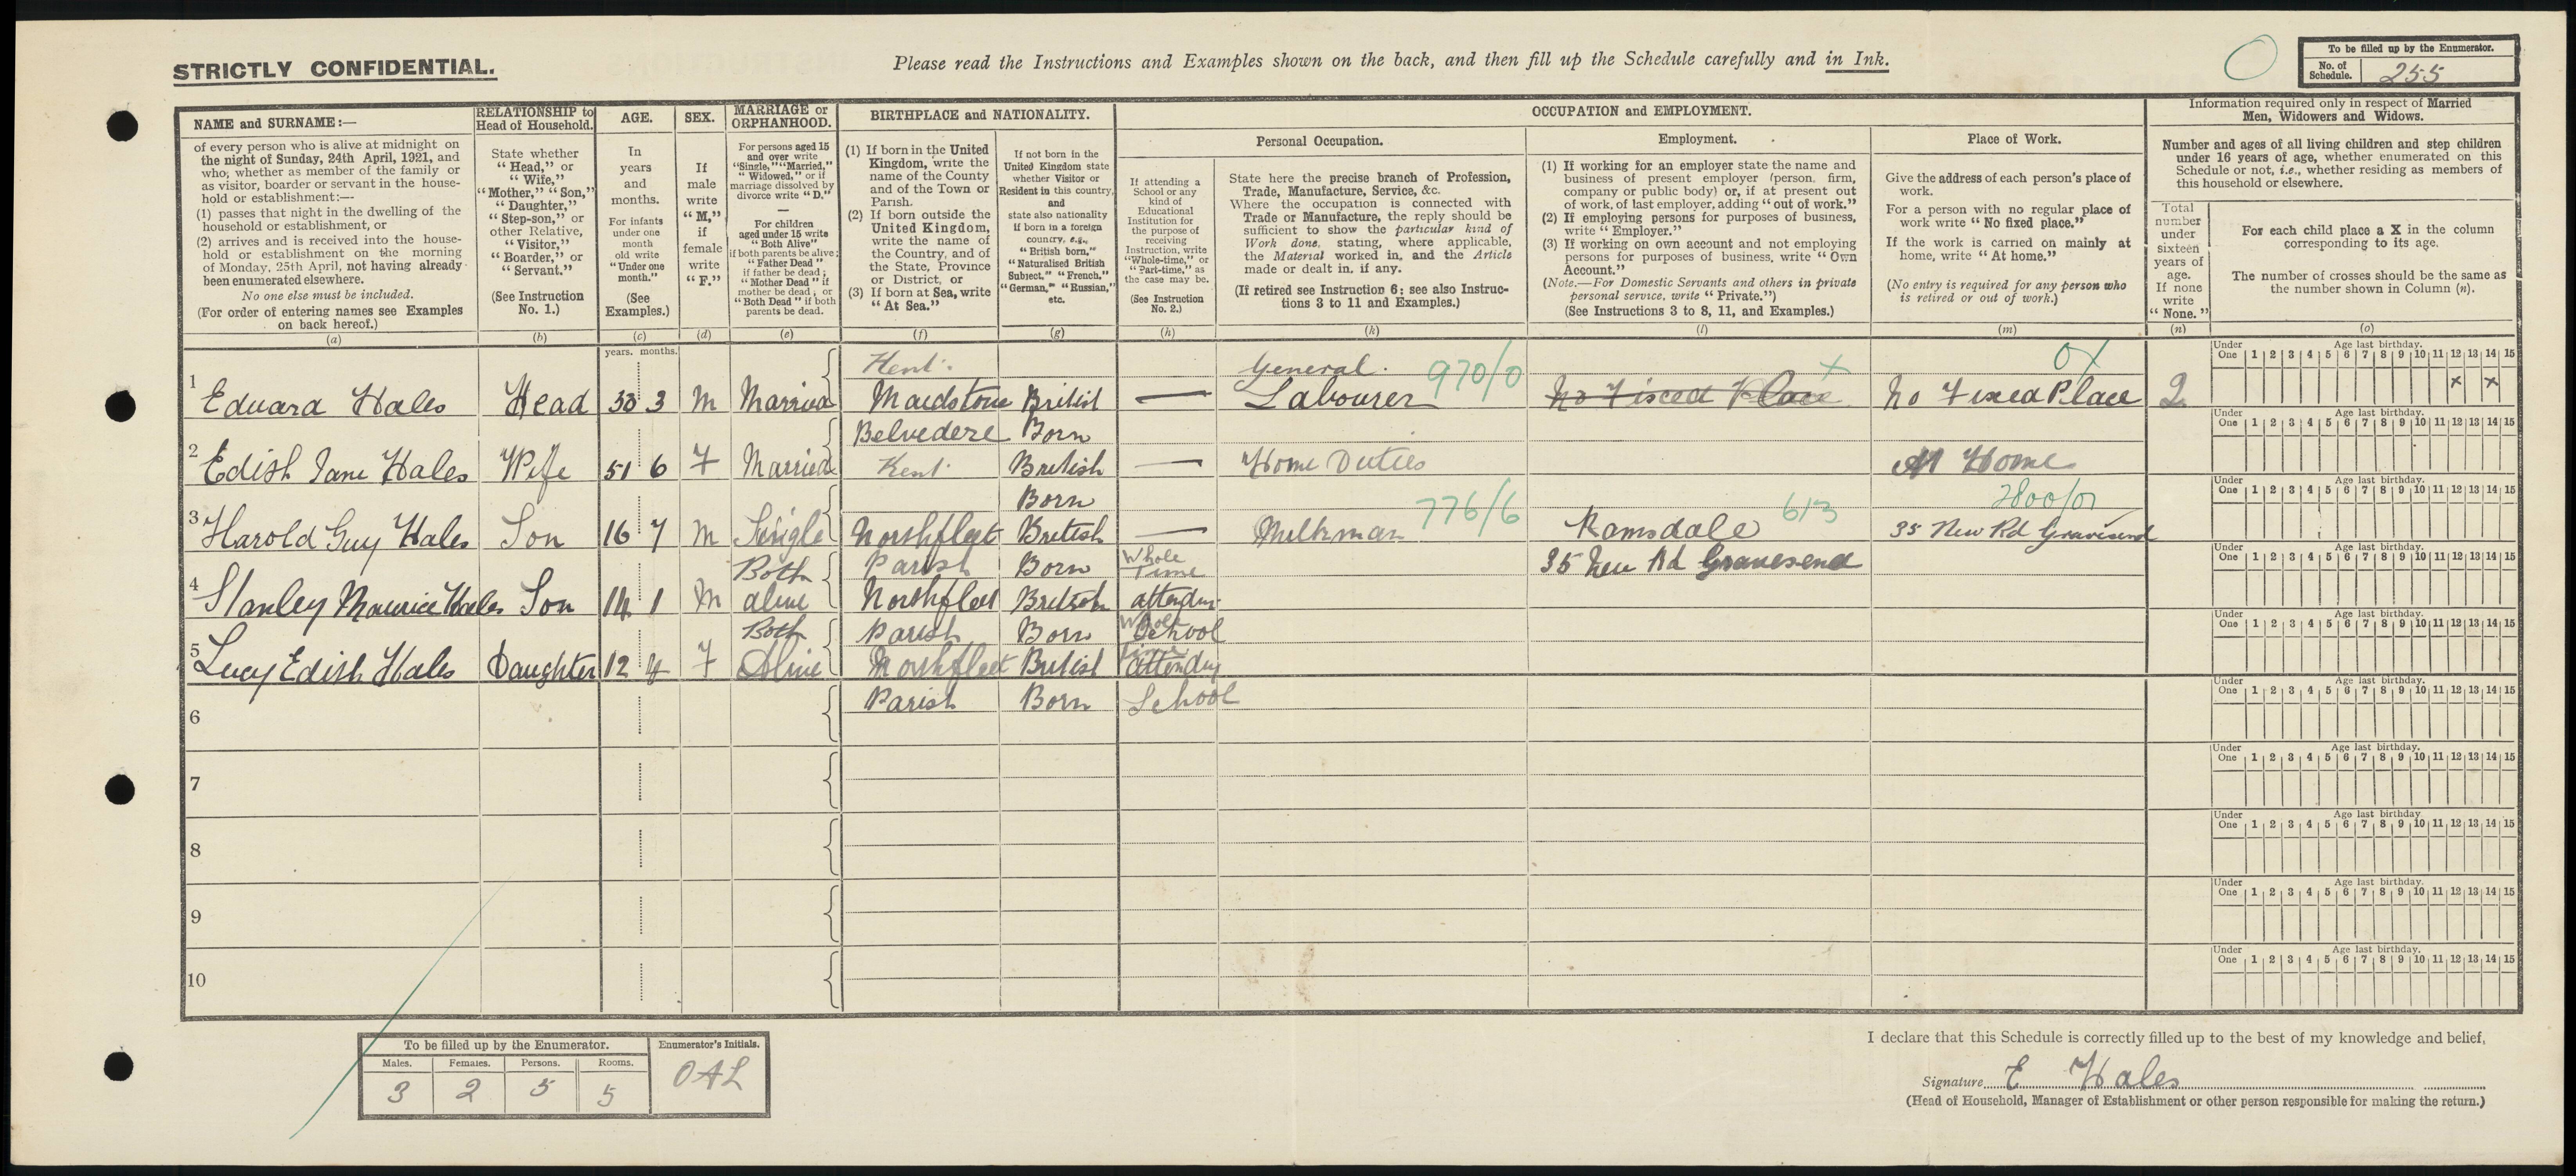 STRICTLY CONFIDENTIAL.
Please read the Instructions and Examples shown on the back, and then fill up the Schedule carefully and in Ink.
To be filled up by the Enumerator.
No. of Schedule. 255
NAME and SURNAME:—
of every person who is alive at midnight on
the night of Sunday, 24th April, 1921, and
who, whether as member of the family or
as visitor, boarder or servant in the house-
hold or establishment:—
(1) passes that night in the dwelling of the
household or establishment, or
(2) arrives and is received into the house-
hold or establishment on the morning
of Monday, 25th April, not having already
been enumerated elsewhere.
No one else must be included.
(For order of entering names see Examples
on back hereof.)
(a)
RELATIONSHIP to
Head of Household.
State whether
"Head," or
"Wife,"
"Mother," "Son,"
"Daughter,"
"Step-son," or
other Relative,
"Visitor,"
"Boarder," or
"Servant."
(See Instruction
No. 1.)
(b)
AGE.
In
years
and
months.
For infants
under one
month
old write
"Under one
month."
(See
Examples.)
(c)
SEX.
If
male
write
"M,"
if
female
write
"F."
(d)
MARRIAGE or
ORPHANHOOD.
For persons aged 15
and over write
"Single," "Married,"
"Widowed," or if
marriage dissolved by
divorce write "D."
—
For children
aged under 15 write
"Both Alive"
if both parents be alive;
"Father Dead"
if father be dead;
"Mother Dead" if
mother be dead; or
"Both Dead" if both
parents be dead.
(e)
BIRTHPLACE and NATIONALITY.
(1) If born in the United
Kingdom, write the
name of the County
and of the Town or
Parish.
(2) If born outside the
United Kingdom,
write the name of
the Country, and of
the State, Province
or District, or
(3) If born at Sea, write
"At Sea."
(f)
If not born in the
United Kingdom state
whether Visitor or
Resident in this country,
and
state also nationality
if born in a foreign
country, e.g.,
"British born,"
"Naturalised British
Subject," "French,"
"German," "Russian,"
etc.
(g)
OCCUPATION and EMPLOYMENT.
If attending a
School or any
kind of
Educational
Institution for
the purpose of
receiving
Instruction, write
"Whole-time," or
"Part-time," as
the case may be.
(See Instruction
No. 2.)
(h)
Personal Occupation.
State here the precise branch of Profession,
Trade, Manufacture, Service, &c.
Where the occupation is connected with
Trade or Manufacture, the reply should be
sufficient to show the particular kind of
Work done, stating, where applicable,
the Material worked in, and the Article
made or dealt in, if any.
(If retired see Instruction 6; see also Instruc-
tions 3 to 11 and Examples.)
(k)
Employment.
(1) If working for an employer state the name and
business of present employer (person, firm,
company or public body) or, if at present out
of work, of last employer, adding "out of work."
(2) If employing persons for purposes of business,
write "Employer."
(3) If working on own account and not employing
persons for purposes of business, write "Own
Account."
(Note.—For Domestic Servants and others in private
personal service, write "Private.")
(See Instructions 3 to 8, 11, and Examples.)
(l)
Place of Work.
Give the address of each person's place of
work.
For a person with no regular place of
work write "No fixed place."
If the work is carried on mainly at
home, write "At home."
(No entry is required for any person who
is retired or out of work.)
(m)
Information required only in respect of Married
Men, Widowers and Widows.
Number and ages of all living children and step children
under 16 years of age, whether enumerated on this
Schedule or not, i.e., whether residing as members of
this household or elsewhere.
Total
number
under
sixteen
years of
age.
If none
write
"None."
(n)
For each child place a X in the column
corresponding to its age.
The number of crosses should be the same as
the number shown in Column (n).
(o)
years. months.
Under One Age last birthday. 1 2 3 4 5 6 7 8 9 10 11 12 13 14 15
Kent. General. 970/0
1 Edward Hales Head 3 M Married Maidstone British — Labourer No Fixed Place No Fixed Place 2 x x
Belvedere Born
2 Edith Jane Hales Wife 51 6 F Married Kent British — Home Duties At Home
Born 776/6 613
3 Harold Guy Hales Son 16 7 M Single Northfleet British — Milkman Ramsdale 35 New Rd Gravesend
Both Parish Born Whole Time 35 New Rd Gravesend
4 Stanley Maurice Hales Son 14 1 M alive Northfleet British attending
Both Parish Born School
5 Lucy Edith Hales Daughter 12 4 F Alive Northfleet British attending
Parish Born School
6
7
8
9
10
To be filled up by the Enumerator.
Males. Females. Persons. Rooms.
3 2 5 5
Enumerator's Initials.
OAL
I declare that this Schedule is correctly filled up to the best of my knowledge and belief,
Signature E Hales
(Head of Household, Manager of Establishment or other person responsible for making the return.)